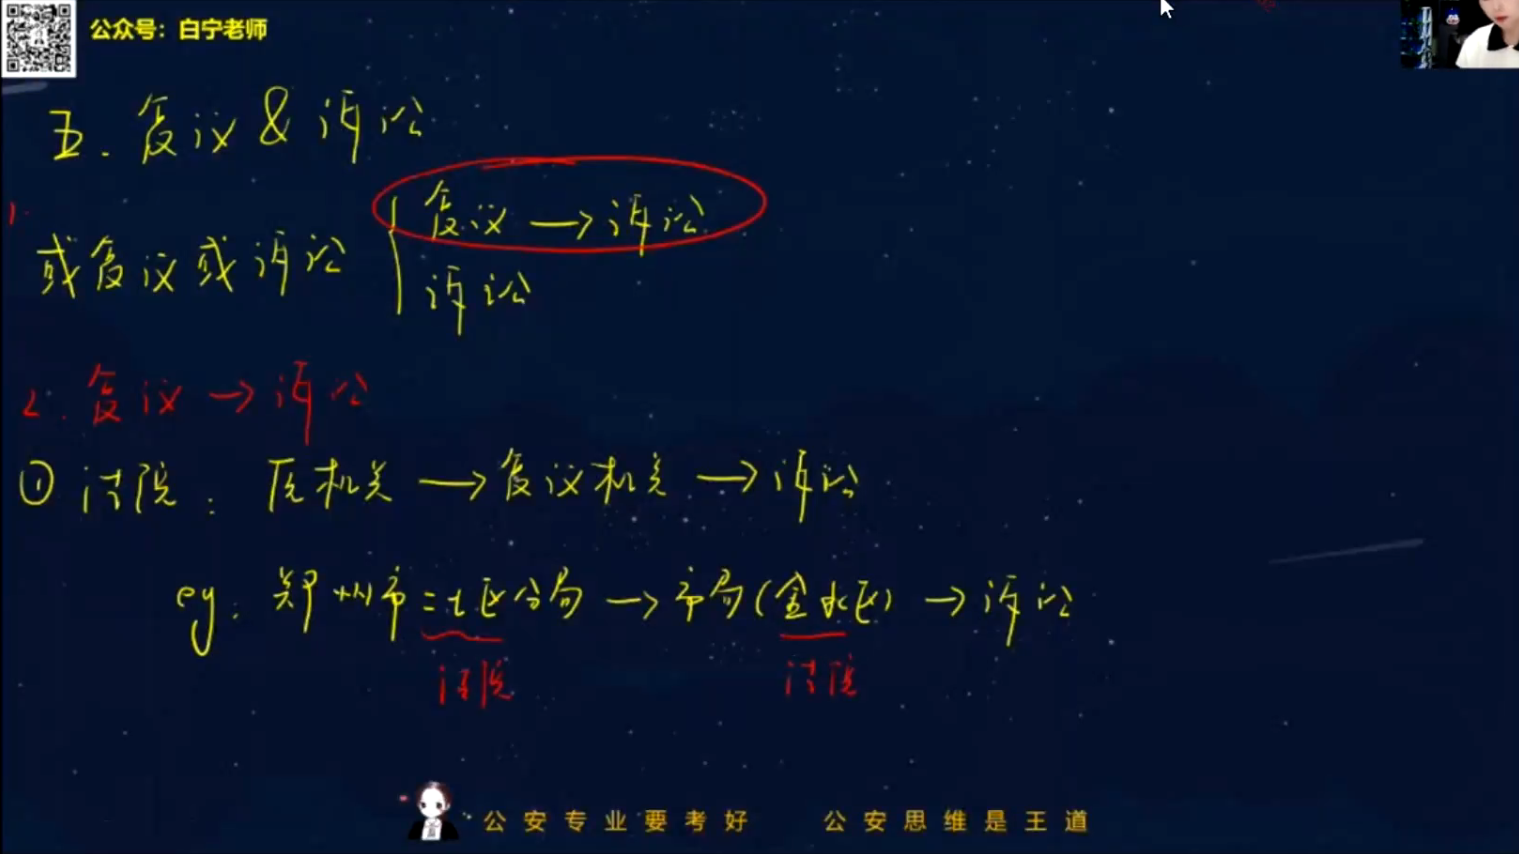 公众号：白宁老师
五.复议&诉讼
1.
或复议或诉讼 { 复议→诉讼
诉讼
2.复议→诉讼
① 法院：原机关→复议机关→诉讼
eg.郑州市二七区分局→市局(金水区)→诉讼
法院 法院
公安专业要考好 公安思维是王道